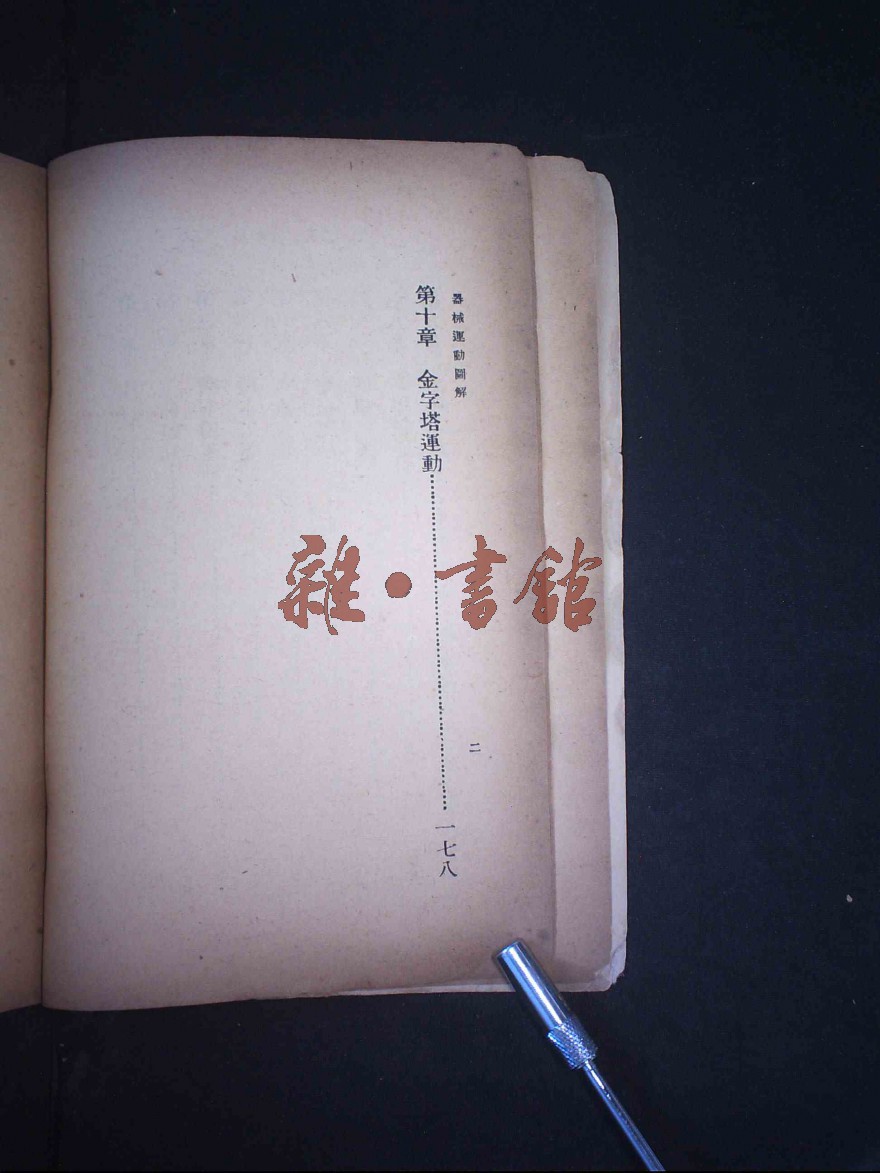 器械運動圖解
二
第十章　金字塔運動……………………一七八
雜·書館